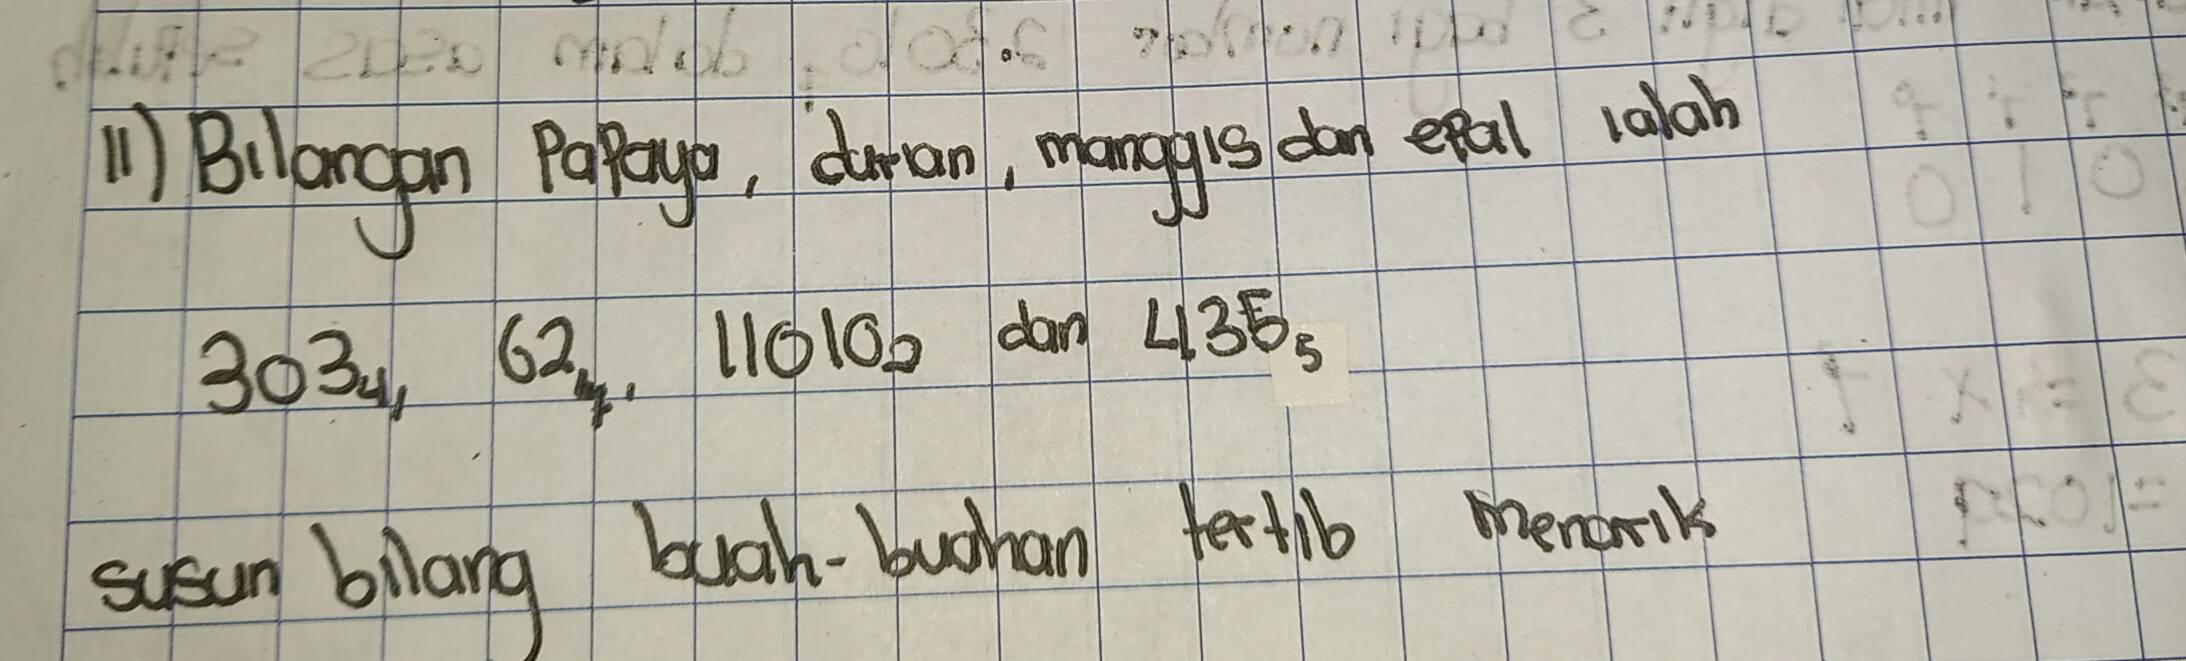 11) Bilangan Papaya, durian, manggis dan epal ialah
303₄, 62₇, 11010₂ dan 435₅
susun bilang buah-buahan tertib menarik